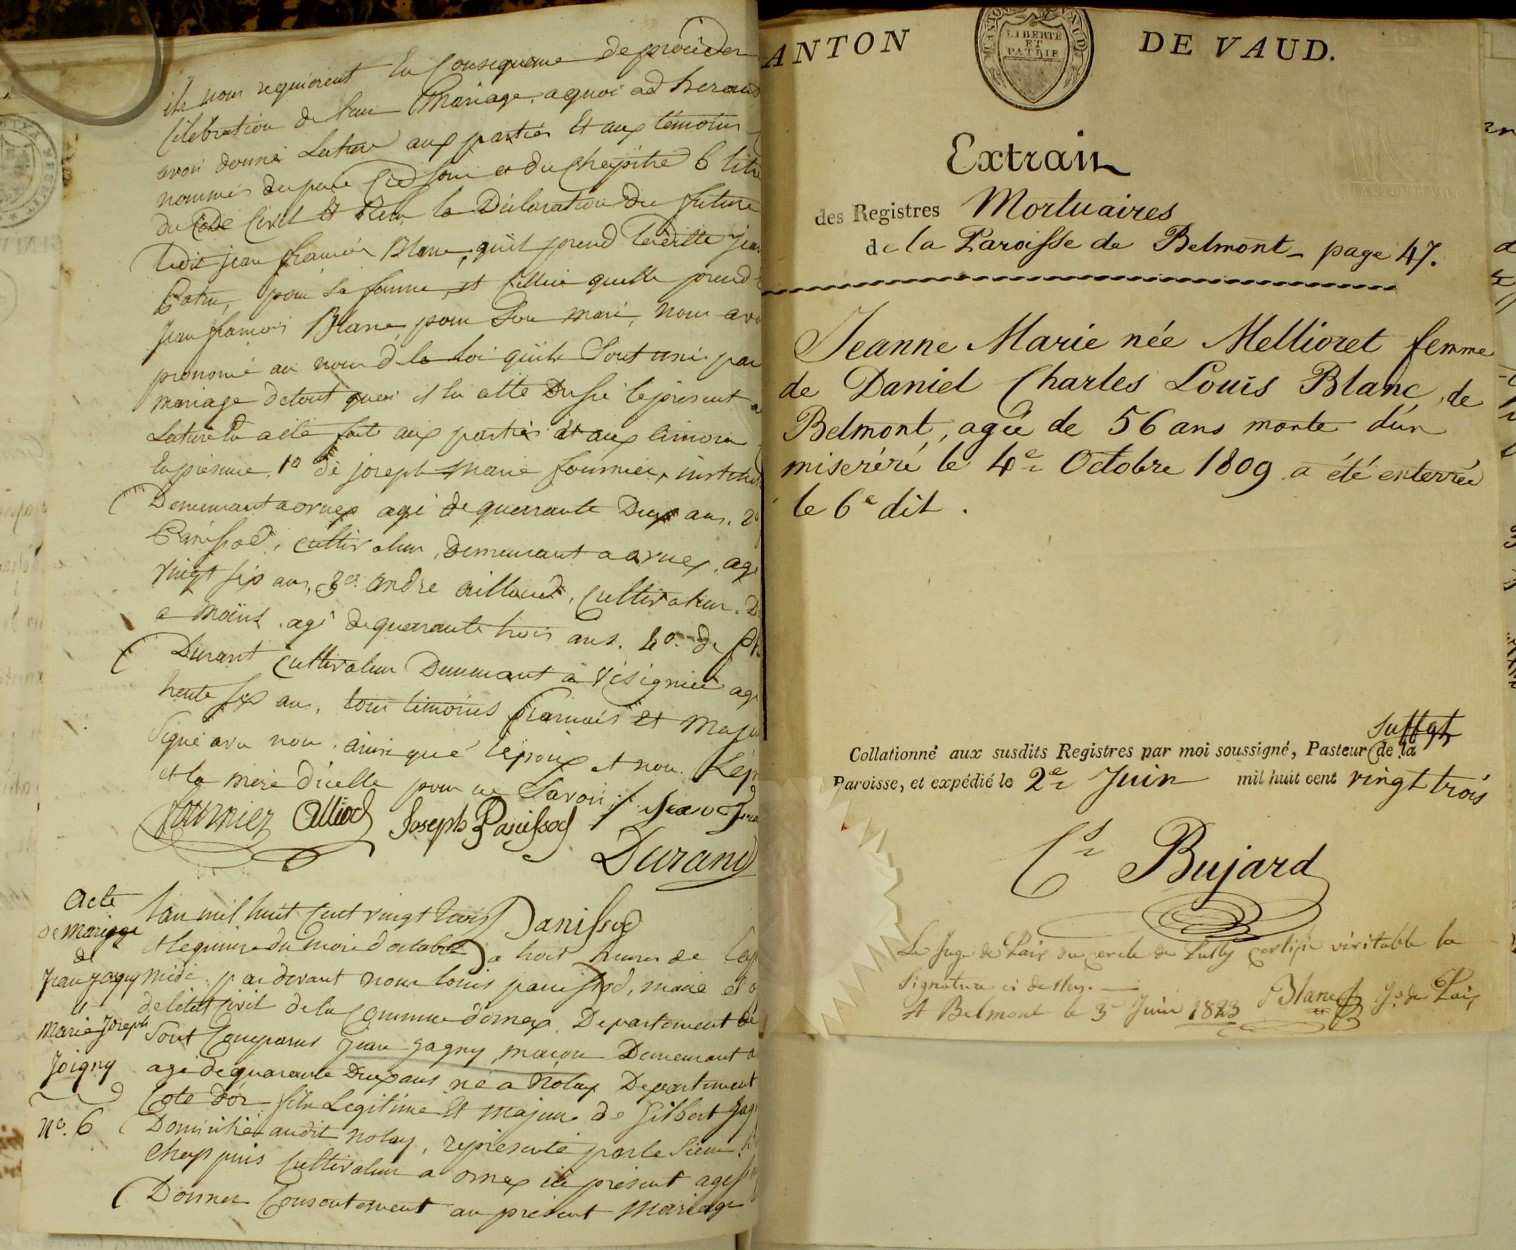 ils nous requierent En Consequence de proceder
Celebration de leur Mariage, aquoi adherant
avon donné Lecture aux parties Et aux témoins
nommés du chapitre 6 titre
du Code Civil Et Recu la Déclaration du future
ledit jean francois Blanc, qu'il prend ladite
pour Sa femme, et Celleci quelle prend
Jean francois Blanc pour Son mari, nous avon
prononcé au nom de la Loi qu'ils Sont unis par
mariage detout quoi il En atté Dressé le présent a
Lecture d'acte faite aux parties et aux témoins
En presence, 1o de joseph marie fournier, institut
Demeurant a ornex agé de quarante Deux ans. 2o
Panissod, cultivateur, demeurant a ornex, agé
vingt six ans, 3o andre ailloud, Cultivateur. D
a Moins. agé de quarante trois ans. 4o de
Durant Cultivateur Demeurant à Vésignié agé
trente six ans, tous témoins francais Et Maje
Signé avec nou. ainsi que l'époux et non. L'ép
et la mere d'icelle pour ne Savoir ./.
fournier Alliod Joseph Panissod
Durand
Panissod
acte
de Mariage
de
Jean gagny
et
Marie Joseph
Joigny
No. 6
L'an mil huit Cent vingt trois
Et le premier du mois d'octobre a huit heures de
midi par devant nous louis panissod, maire et o
de l'état Civil de la Commune d'ornex. Departement de
Sont Comparus Jean gagny, maçon Demeurant a
agé de quarante Deux ans né a Nolay Departement
Cote d'or fils Legitime Et majeur de Gilbert gag
Domicilié audit nolay, représenté par le Sieur
Chappuis Cultivateur a ornex ici présent
Donner Consentement au présent Mariage
ANTON DE VAUD.
CANTON DE VAUD
LIBERTÉ
ET
PATRIE
Extrait
des Registres Mortuaires
de la Paroisse de Belmont - page 47.
Jeanne Marie née Mellioret femme
de Daniel Charles Louis Blanc, de
Belmont, agée de 56 ans morte d'un
miséréré le 4e Octobre 1809 a été enterrée
le 6e dit.
suffgt
Collationné aux susdits Registres par moi soussigné, Pasteur de la
Paroisse, et expédié le 2e Juin mil huit cent vingt trois
Cs Bujard
Le Juge de Paix du cercle de Lutry certifie véritable la
signature ci dessus.
A Belmont le 3e Juin 1823 Blanc J. de Paix